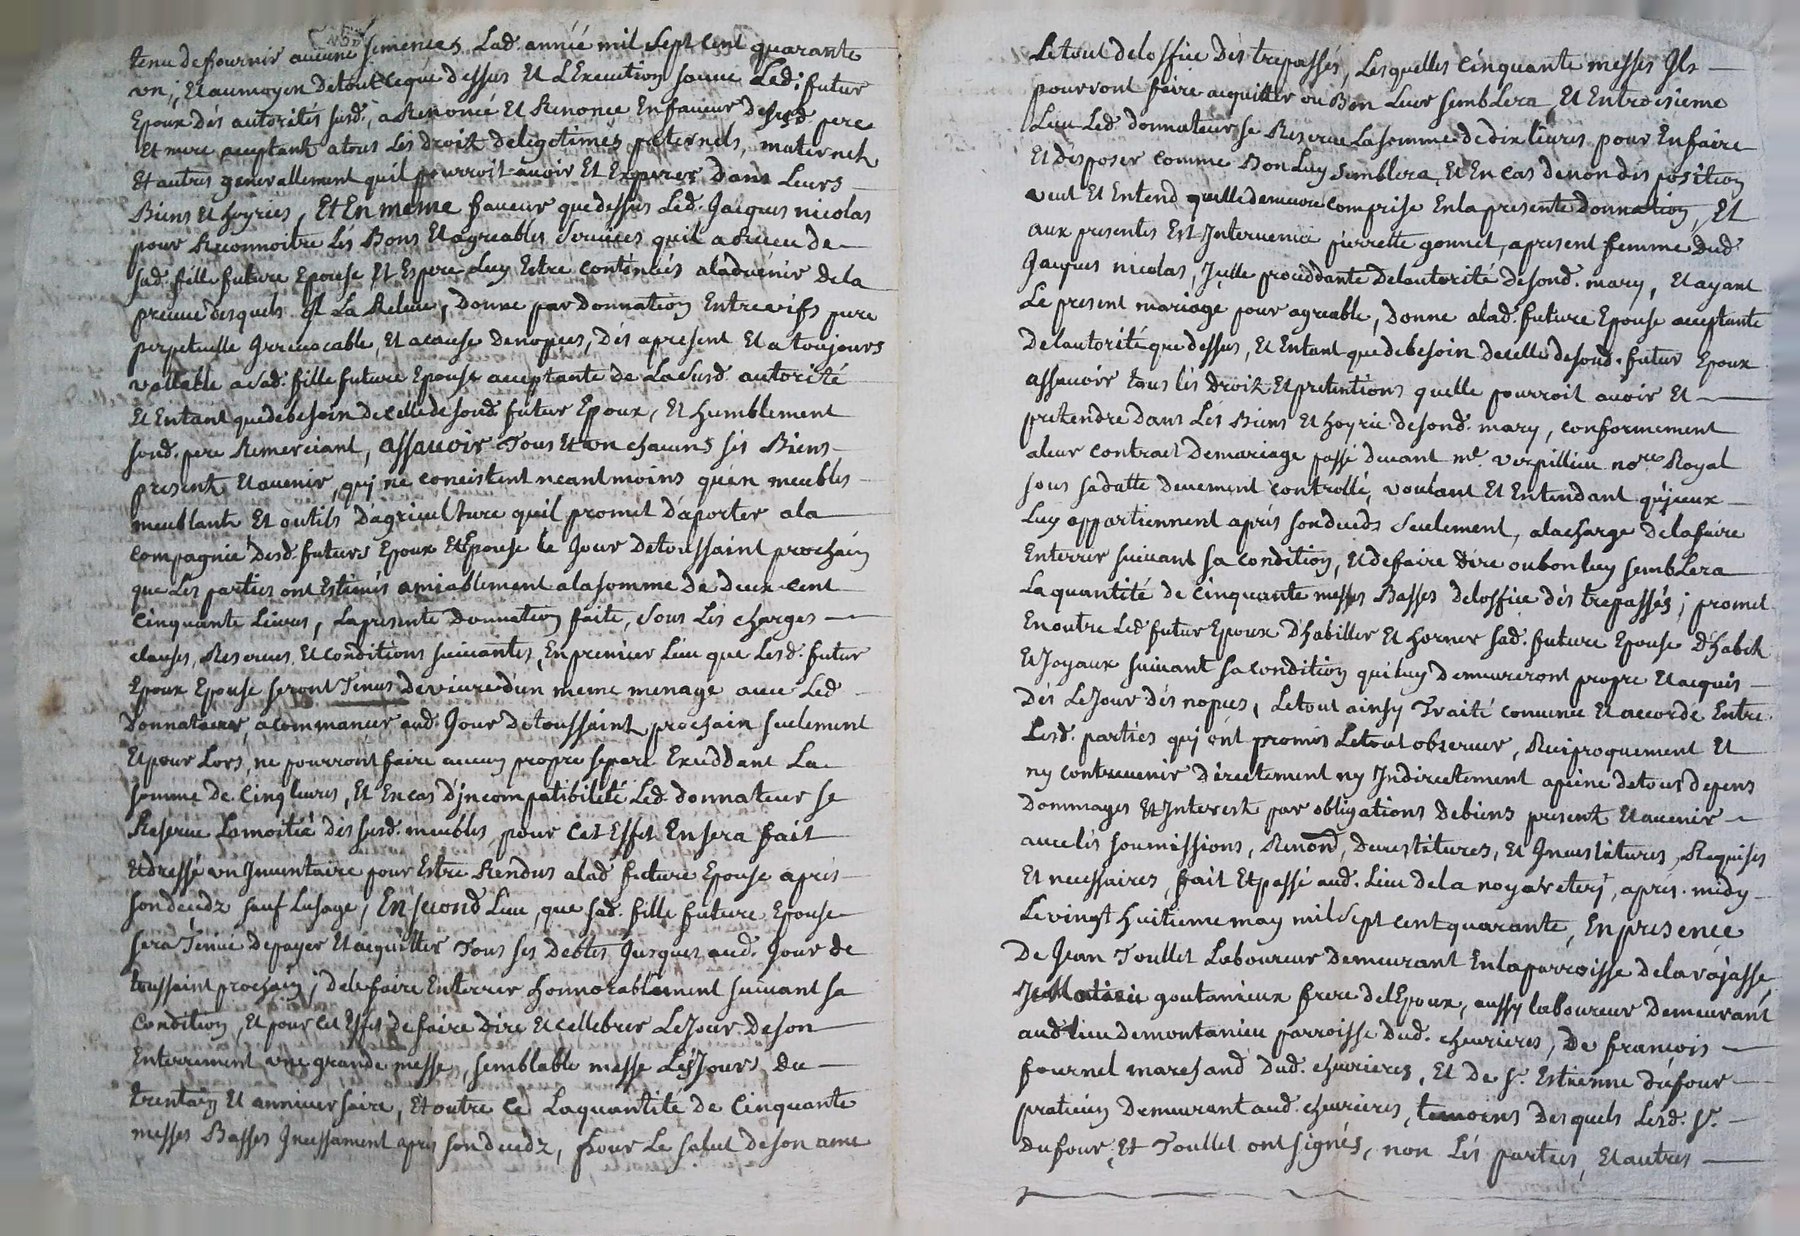 tenu de fournir aucune semences Lad. année mil sept cent quarante
un; Et aumoyen detout ceque dessus Et LExecution sauve Led. futur
Epoux dés autorités susd., a Renoncé Et Renonce Enfaveur desesd pere
Et mere aceptant atous Les droit delegetimés paternels, maternels
Et autres generallement quil pourroit avoir Et Esperer Dans Leurs
Biens Et hoyries, Et En meme faveur que dessus Led. Jacques nicolas
pour Reconnoitre Les Bons Et agreables services quil a Receu de
sad. fille future Epouse Et Espere Luy Estre continués aladvenir dela
preuve desquels Il La Releve, Donne par Donnation Entrevifs pure
perpetuelle Irrevocable, Et acause denopces, Dés apresent Et a toujours
vallable a sad. fille future Epouse acceptante de La susd. autorité
Et Entant quedebesoin decelle desond futur Epoux, Et humblement
sond. pere Remerciant, assavoir Tous Et un chacuns ses Biens
present Et avenir, qui ne concistent neantmoins quén meubles
meublants Et outils Dágriculture quil promet Dáporter ala
compagnie desd. futurs Epoux Et Epouse le Jour detoussaint prochain
que Les parties ont Estimés amiablement alasomme de Deux cent
Cinquante Livres, La presente Donnation faite, sous Les charges
clauses, Reserves, Et conditions suivantes, En premier Lieu que Lesd. futur
Epoux Epouse seront Tenus devivre d'un meme menage avec Led
Donnateur, acommancer aud. Jour detoussaint prochain seulement
Et pour Lors, ne pourront faire aucun propre separé Exceddant La
somme de Cinq livres, Et Encas D'incompatibilité Led. donnateur se
Reserve Lamoitié dés susd. meubles, pour Cet Effet En sera fait
Et dressé un Inventaire pour Estre Rendus alad. future Epouse aprés
sondeceds sauf Lusage, En second Lieu, que sad. fille future Epouse
sera Tenue depayer Et acquitter Tous ses Debtes Jusques aud. Jour de
toussaint prochain; delefaire Enterrer honnorablement suivant sa
Condition, Et pour Cet Effet de faire dire Et cellebrer LeJour deson
Enterrement une grande messe, semblable messe Les Jours du
trentain Et anniversaire, Et outre Ce La quantité de Cinquante
messes Basses Incessament aprés son decedz, pour Le salut deson ame
Le tout deloffice Dés trepassés, Lesquelles cinquante messes Ils
pourront faire acquitter ou Bon Leur semblera, Et Entroisieme
Lieu Led. donnateur se Reserve Lasomme de dix livres pour En faire
Et disposer comme Bon Luy semblera, Et En cas denon disposition
veut Et Entend quelle demeure comprise En la presente Donnation, Et
aux presentes Est Intervenüe pierrette gonnet, apresent femme dud
Jacques nicolas, Icelle proceddante Delautorité desond. mary, Et ayant
Le present mariage pour agreable, Donne alad. future Epouse acceptante
Delautorité que dessus, Et Entant quedebesoin decelle desond. futur Epoux
assavoir tous les droit Et pretentions quelle pourroit avoir Et
pretendre Dans Les Biens Et hoyrie desond. mary, conformement
aleur contract demariage passé devant me. verpillieu nore. Royal
sous sadatte deuement controllé, voulant Et Entendant qu'iceux
Luy appartiennent aprés son deceds seulement, alacharge delafaire
Enterrer suivant sa condition, Et de faire dire ou bon luy semblera
La quantité de cinquante messes Basses deloffice dés trepassés; promet
En outre Led futur Epoux D'habiller Et horner sad. future Epouse D'habits
Et Joyaux suivant sa condition qui luy demeureront propre Et acquis
Dés Le Jour dés nopces, Le tout ainsy Traité convenu Et accordé Entre
Lesd. parties qui ont promis Letout observer, Reciproquement Et
ny contrevenir directement ny Indirectement apeine detous depens
Dommages Et Interest par obligations debiens present Et avenir
avec les soumissions, Renond, devestitures, Et Investitures, Requises
Et necessaires, fait Et passé aud. Lieu de la noyareterÿ, aprés. midy
Le vingt huitieme may mil sept cent quarante, En presence
De Jean Toullet Laboureur demeurant En laparroisse dela rajasse,
goutanieux frere de lEpoux, aussy laboureur demeurant
aud lieu demontanieu parroisse dud. chevrieres, De francois
fournel marchand dud. chevrieres, Et De sr. Estienne dufour
praticien Demeurant aud. chevrieres, temoins desquels Lesd. sr.
dufour, Et Toullet ont signés, non Les parties, Et autres